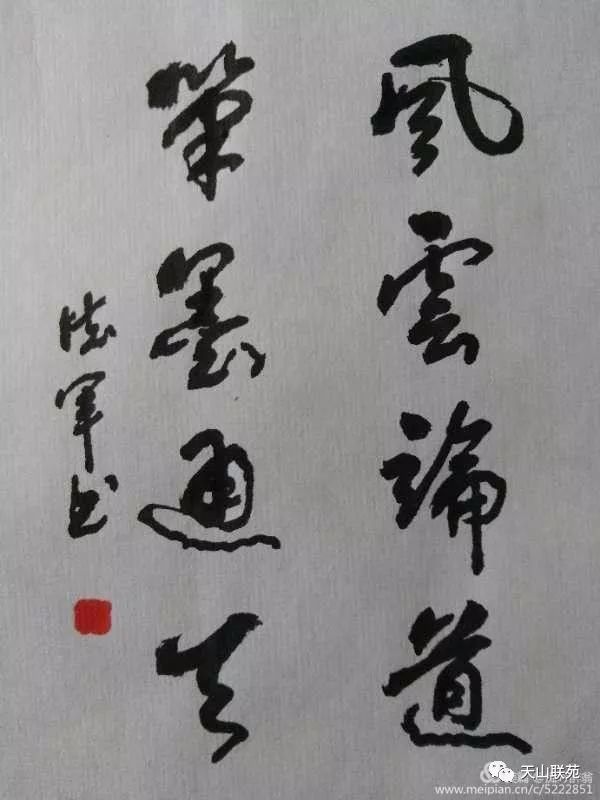 風雲論道
筆墨通天
军书
天山联苑
www.meipian.cn/c/5222851